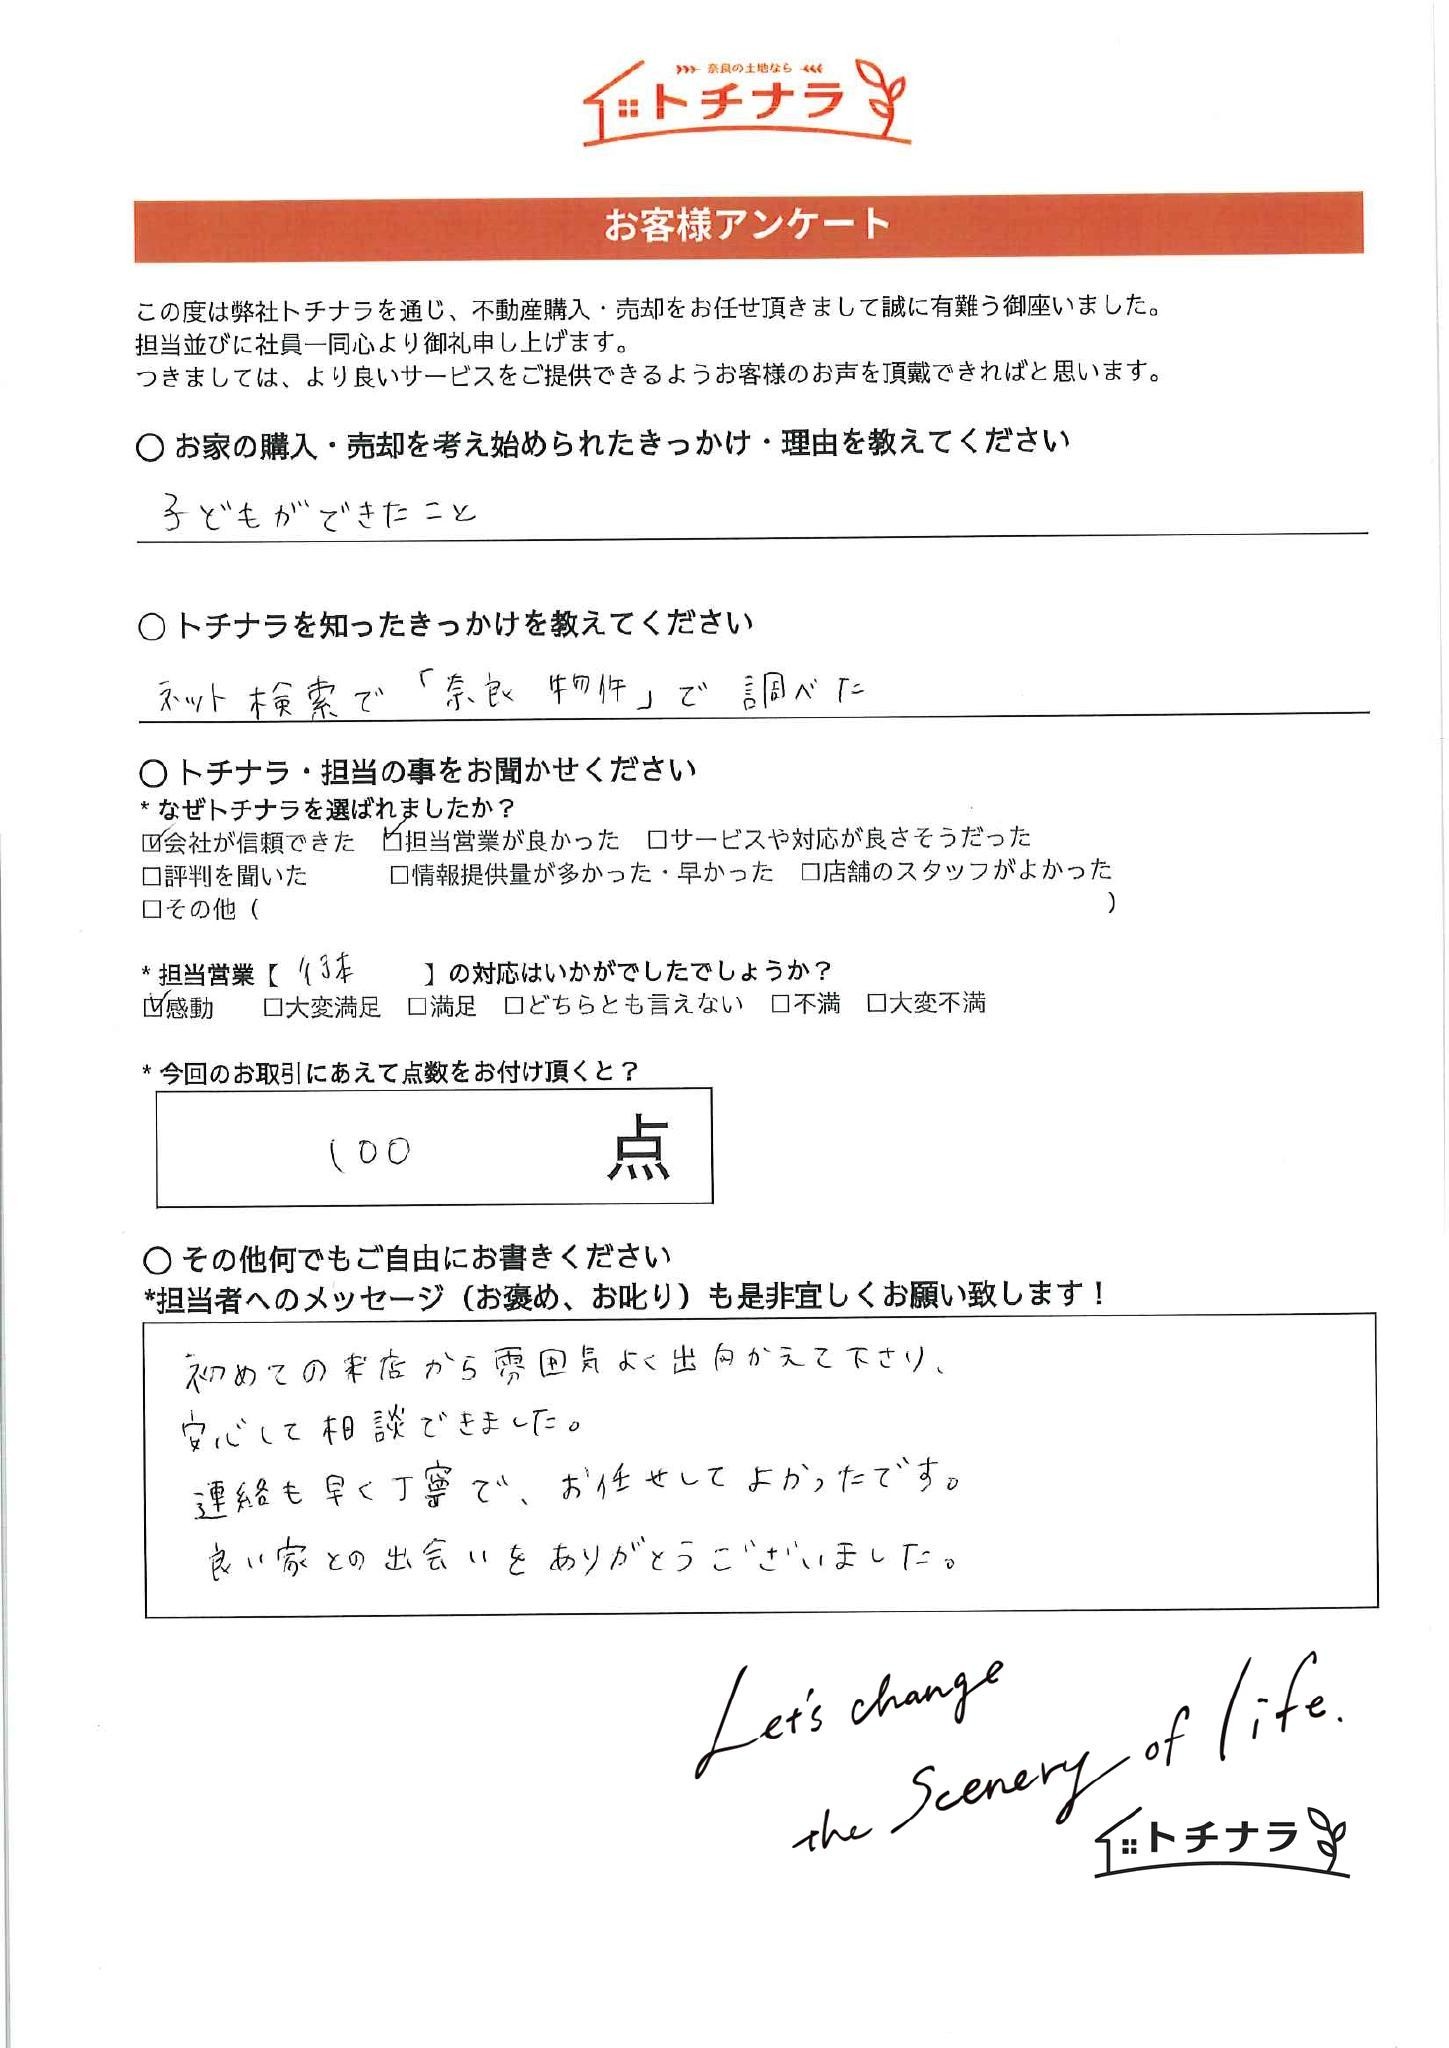 奈良の土地なら
トチナラ
お客様アンケート
この度は弊社トチナラを通じ、不動産購入・売却をお任せ頂きまして誠に有難う御座いました。
担当並びに社員一同心より御礼申し上げます。
つきましては、より良いサービスをご提供できるようお客様のお声を頂戴できればと思います。
○ お家の購入・売却を考え始められたきっかけ・理由を教えてください
子どもができたこと
○ トチナラを知ったきっかけを教えてください
ネット検索で「奈良 物件」で調べた
○ トチナラ・担当の事をお聞かせください
* なぜトチナラを選ばれましたか?
☑会社が信頼できた ☑担当営業が良かった □サービスや対応が良さそうだった
□評判を聞いた □情報提供量が多かった・早かった □店舗のスタッフがよかった
□その他 ( )
* 担当営業【 】の対応はいかがでしたでしょうか?
☑感動 □大変満足 □満足 □どちらとも言えない □不満 □大変不満
* 今回のお取引にあえて点数をお付け頂くと?
100 点
○ その他何でもご自由にお書きください
*担当者へのメッセージ（お褒め、お叱り）も是非宜しくお願い致します!
初めての来店から雰囲気よく出向かえて下さり、
安心して相談できました。
連絡も早く丁寧で、お任せしてよかったです。
良い家との出会いをありがとうございました。
Let's change
the Scenery of life.
トチナラ